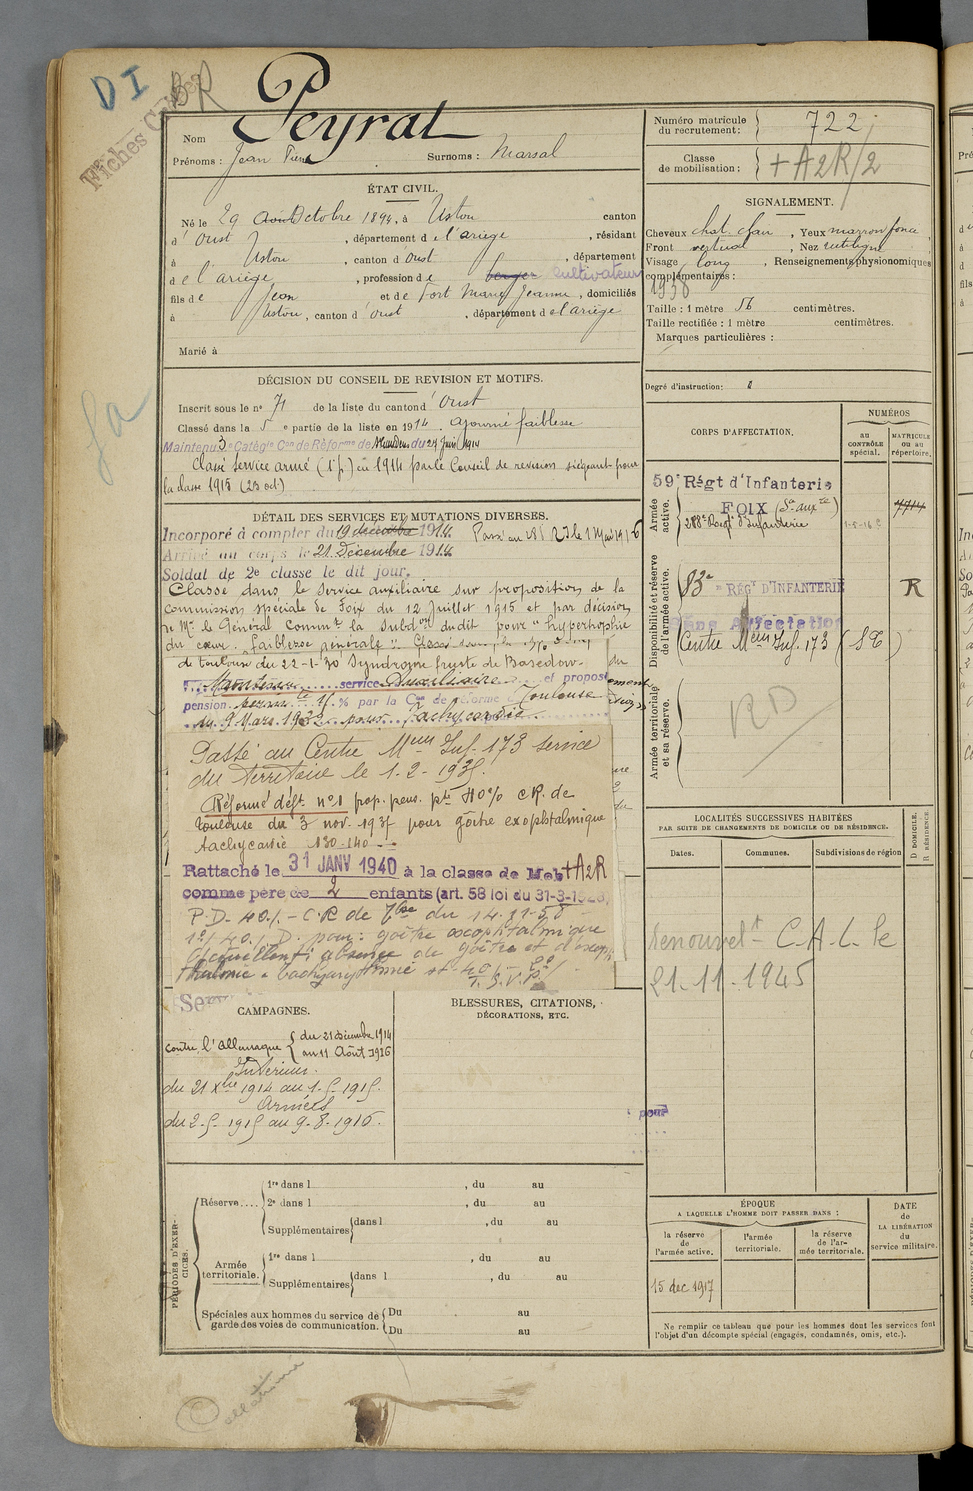 DI
BR
Fiches
Peyrat
Nom
Prénoms : Jean Pierre Surnoms : Marsal
Numéro matricule du recrutement : 722
Classe de mobilisation : + A2R/2
ÉTAT CIVIL.
Né le 29 Août Octobre 1894, à Ustou canton
d'Oust, département de l'ariège, résidant
à Ustou, canton d'Oust, département
de l'ariège, profession de berger cultivateur
fils de Jean et de Fort Marie Jeanne, domiciliés
à Ustou, canton d'Oust, département de l'ariège
Marié à
SIGNALEMENT.
Cheveux chat. clair, Yeux marron foncé,
Front vertical, Nez rectiligne
Visage long, Renseignements physionomiques
complémentaires :
1938
Taille : 1 mètre 56 centimètres.
Taille rectifiée : 1 mètre centimètres.
Marques particulières :
Degré d'instruction : 2
DÉCISION DU CONSEIL DE REVISION ET MOTIFS.
Inscrit sous le n° 71 de la liste du canton d'Oust
Classé dans la 5e partie de la liste en 1914. ajourné faiblesse
Maintenu 3e Catégie Con de Réforme de du 27 Juin 1914
Classé Service armé (1e p.) en 1914 par le Conseil de revision siégeant pour
la classe 1915 (23 oct)
DÉTAIL DES SERVICES ET MUTATIONS DIVERSES.
Incorporé à compter du 19 décembre 1914. Passé au 288 RI le 1 Mai 1916
Arrivé au corps le 21 Décembre 1914
Soldat de 2e classe le dit jour.
Classé dans le service auxiliaire sur proposition de la
commission spéciale de Foix du 12 Juillet 1915 et par décision
de Mr le Général Commt la Subdon dudit pour "hypertrophie
du cœur. Faiblesse générale".
de toulouse du 22-1-30 Syndrome fruste de Basedow.
Maintenu service Auxiliaire et propost
pension perm. te 15 % par la Con de réforme Toulouse
du 9 Mars 1932 pour Tachycardie
Passé au Centre Meur Inf. 173 service
du Territoire le 1-2-1935.
Réformé déft. n°1 prop. pens. pte 40% CR. de
Toulouse du 3 nov. 1937 pour goitre exophtalmique
tachycardie 130-140
Rattaché le 31 JANV 1940 à la classe de Mob + A2R
comme père de 2 enfants (art. 58 loi du 31-3-1928)
P.D. 40%. - C.R de Tlse du 14.11.55 -
1°/ 40% D. pour : goitre exophtalmique
Actuellement absence de goitre et d'exoph
thalmie - tachyarythmie st 40% - 2°/
T.S.V.P.
CORPS D'AFFECTATION.
NUMÉROS
AU CONTRÔLE spécial.
MATRICULE OU AU répertoire.
Armée active.
59e Régt d'Infanterie
FOIX (Son auxre)
288e Regt d'Infanterie 1-5-16
Disponibilité et réserve de l'armée active.
83e RÉGT D'INFANTERIE R
Sans Affectation
Centre Meur Inf. 173 (St)
Armée territoriale et sa réserve.
RD
LOCALITÉS SUCCESSIVES HABITÉES
PAR SUITE DE CHANGEMENTS DE DOMICILE OU DE RÉSIDENCE.
Dates. Communes. Subdivisions de région
D DOMICILE.
R RÉSIDENCE
Renouvelt C.A.L. le
21.11.1945
CAMPAGNES.
contre l'Allemagne { du 21 décembre 1914
au 11 Août 1916
Intérieur.
du 21 Xbre 1914 au 1-5-1915.
Armées
du 2-5-1915 au 9-8-1916.
BLESSURES, CITATIONS,
DÉCORATIONS, ETC.
pour
PÉRIODES D'EXERCICES.
Réserve.... 1re dans l , du au
2e dans l , du au
Supplémentaires dans l , du au
Armée territoriale. 1re dans l , du au
Supplémentaires dans l , du au
Spéciales aux hommes du service de garde des voies de communication. Du au
Du au
ÉPOQUE
A LAQUELLE L'HOMME DOIT PASSER DANS :
la réserve de l'armée active.
l'armée territoriale.
la réserve de l'armée territoriale.
DATE de LA LIBÉRATION du service militaire.
15 dec 1917
Ne remplir ce tableau que pour les hommes dont les services font
l'objet d'un décompte spécial (engagés, condamnés, omis, etc.).